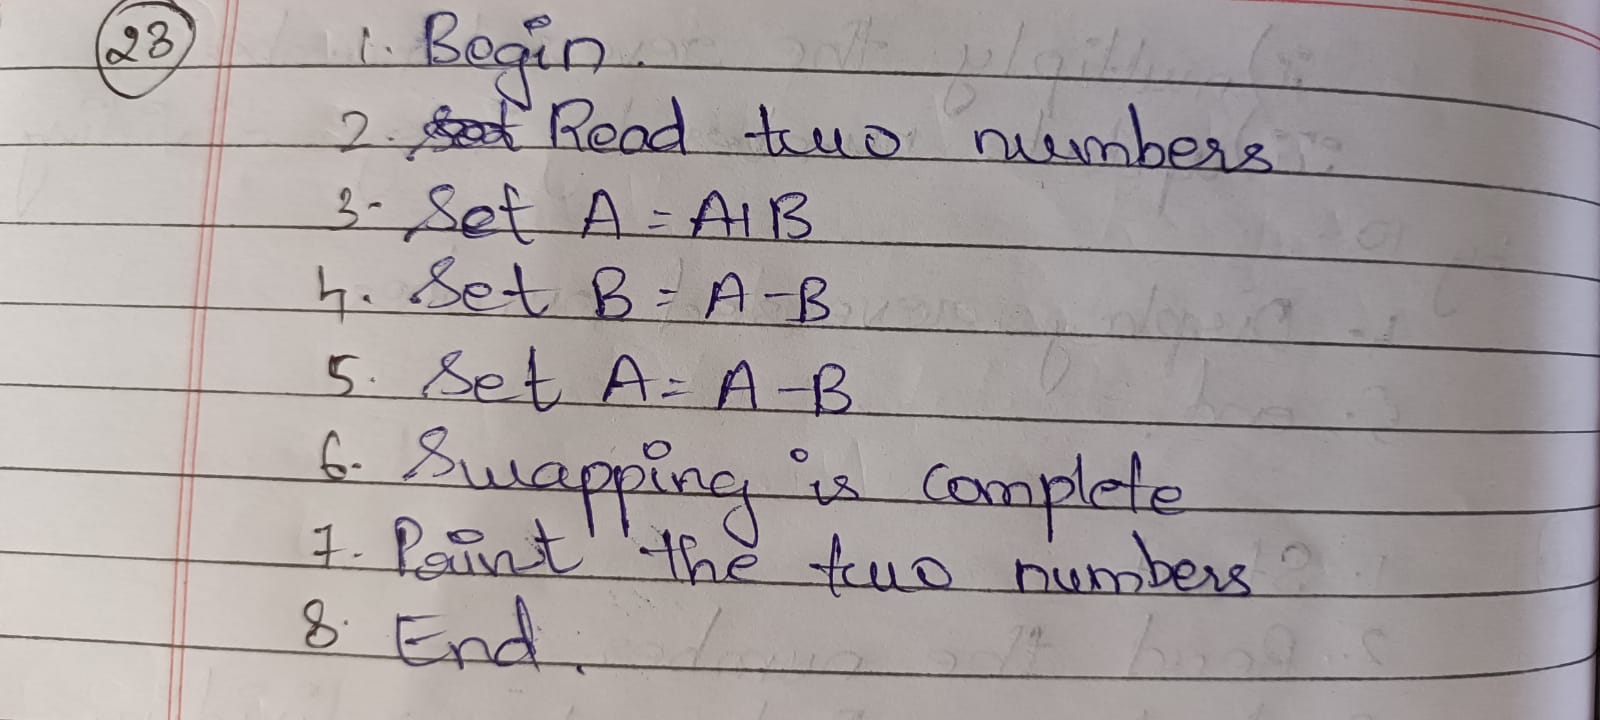 23 1. Begin.
2. Read two numbers
3- Set A = A+B
4. Set B = A-B
5. Set A = A-B
6. Swapping is complete
7. Print the two numbers
8. End.